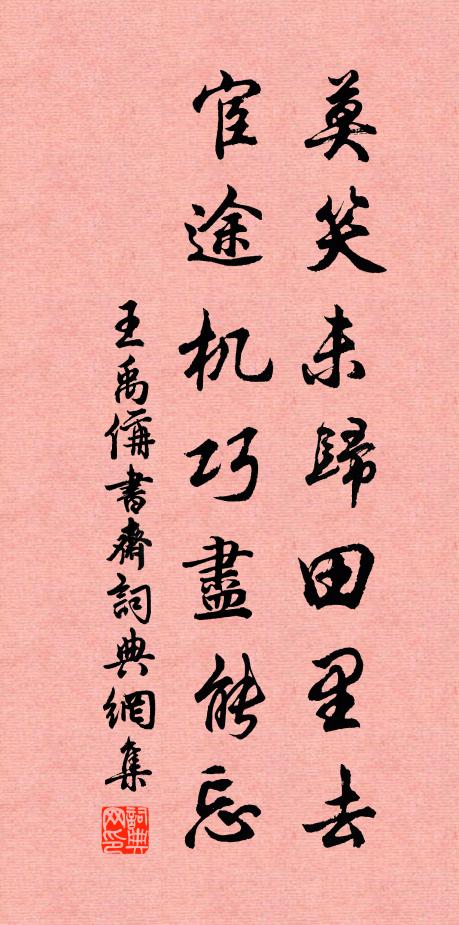 莫笑未歸田里去
宦途机巧盡能忘
王禹偁書齋詞典網集
詞典网印